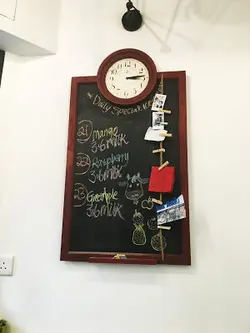 Daily Special
Mango
3.6 milk
Raspberry
3.6 milk
Pineapple
3.6 milk